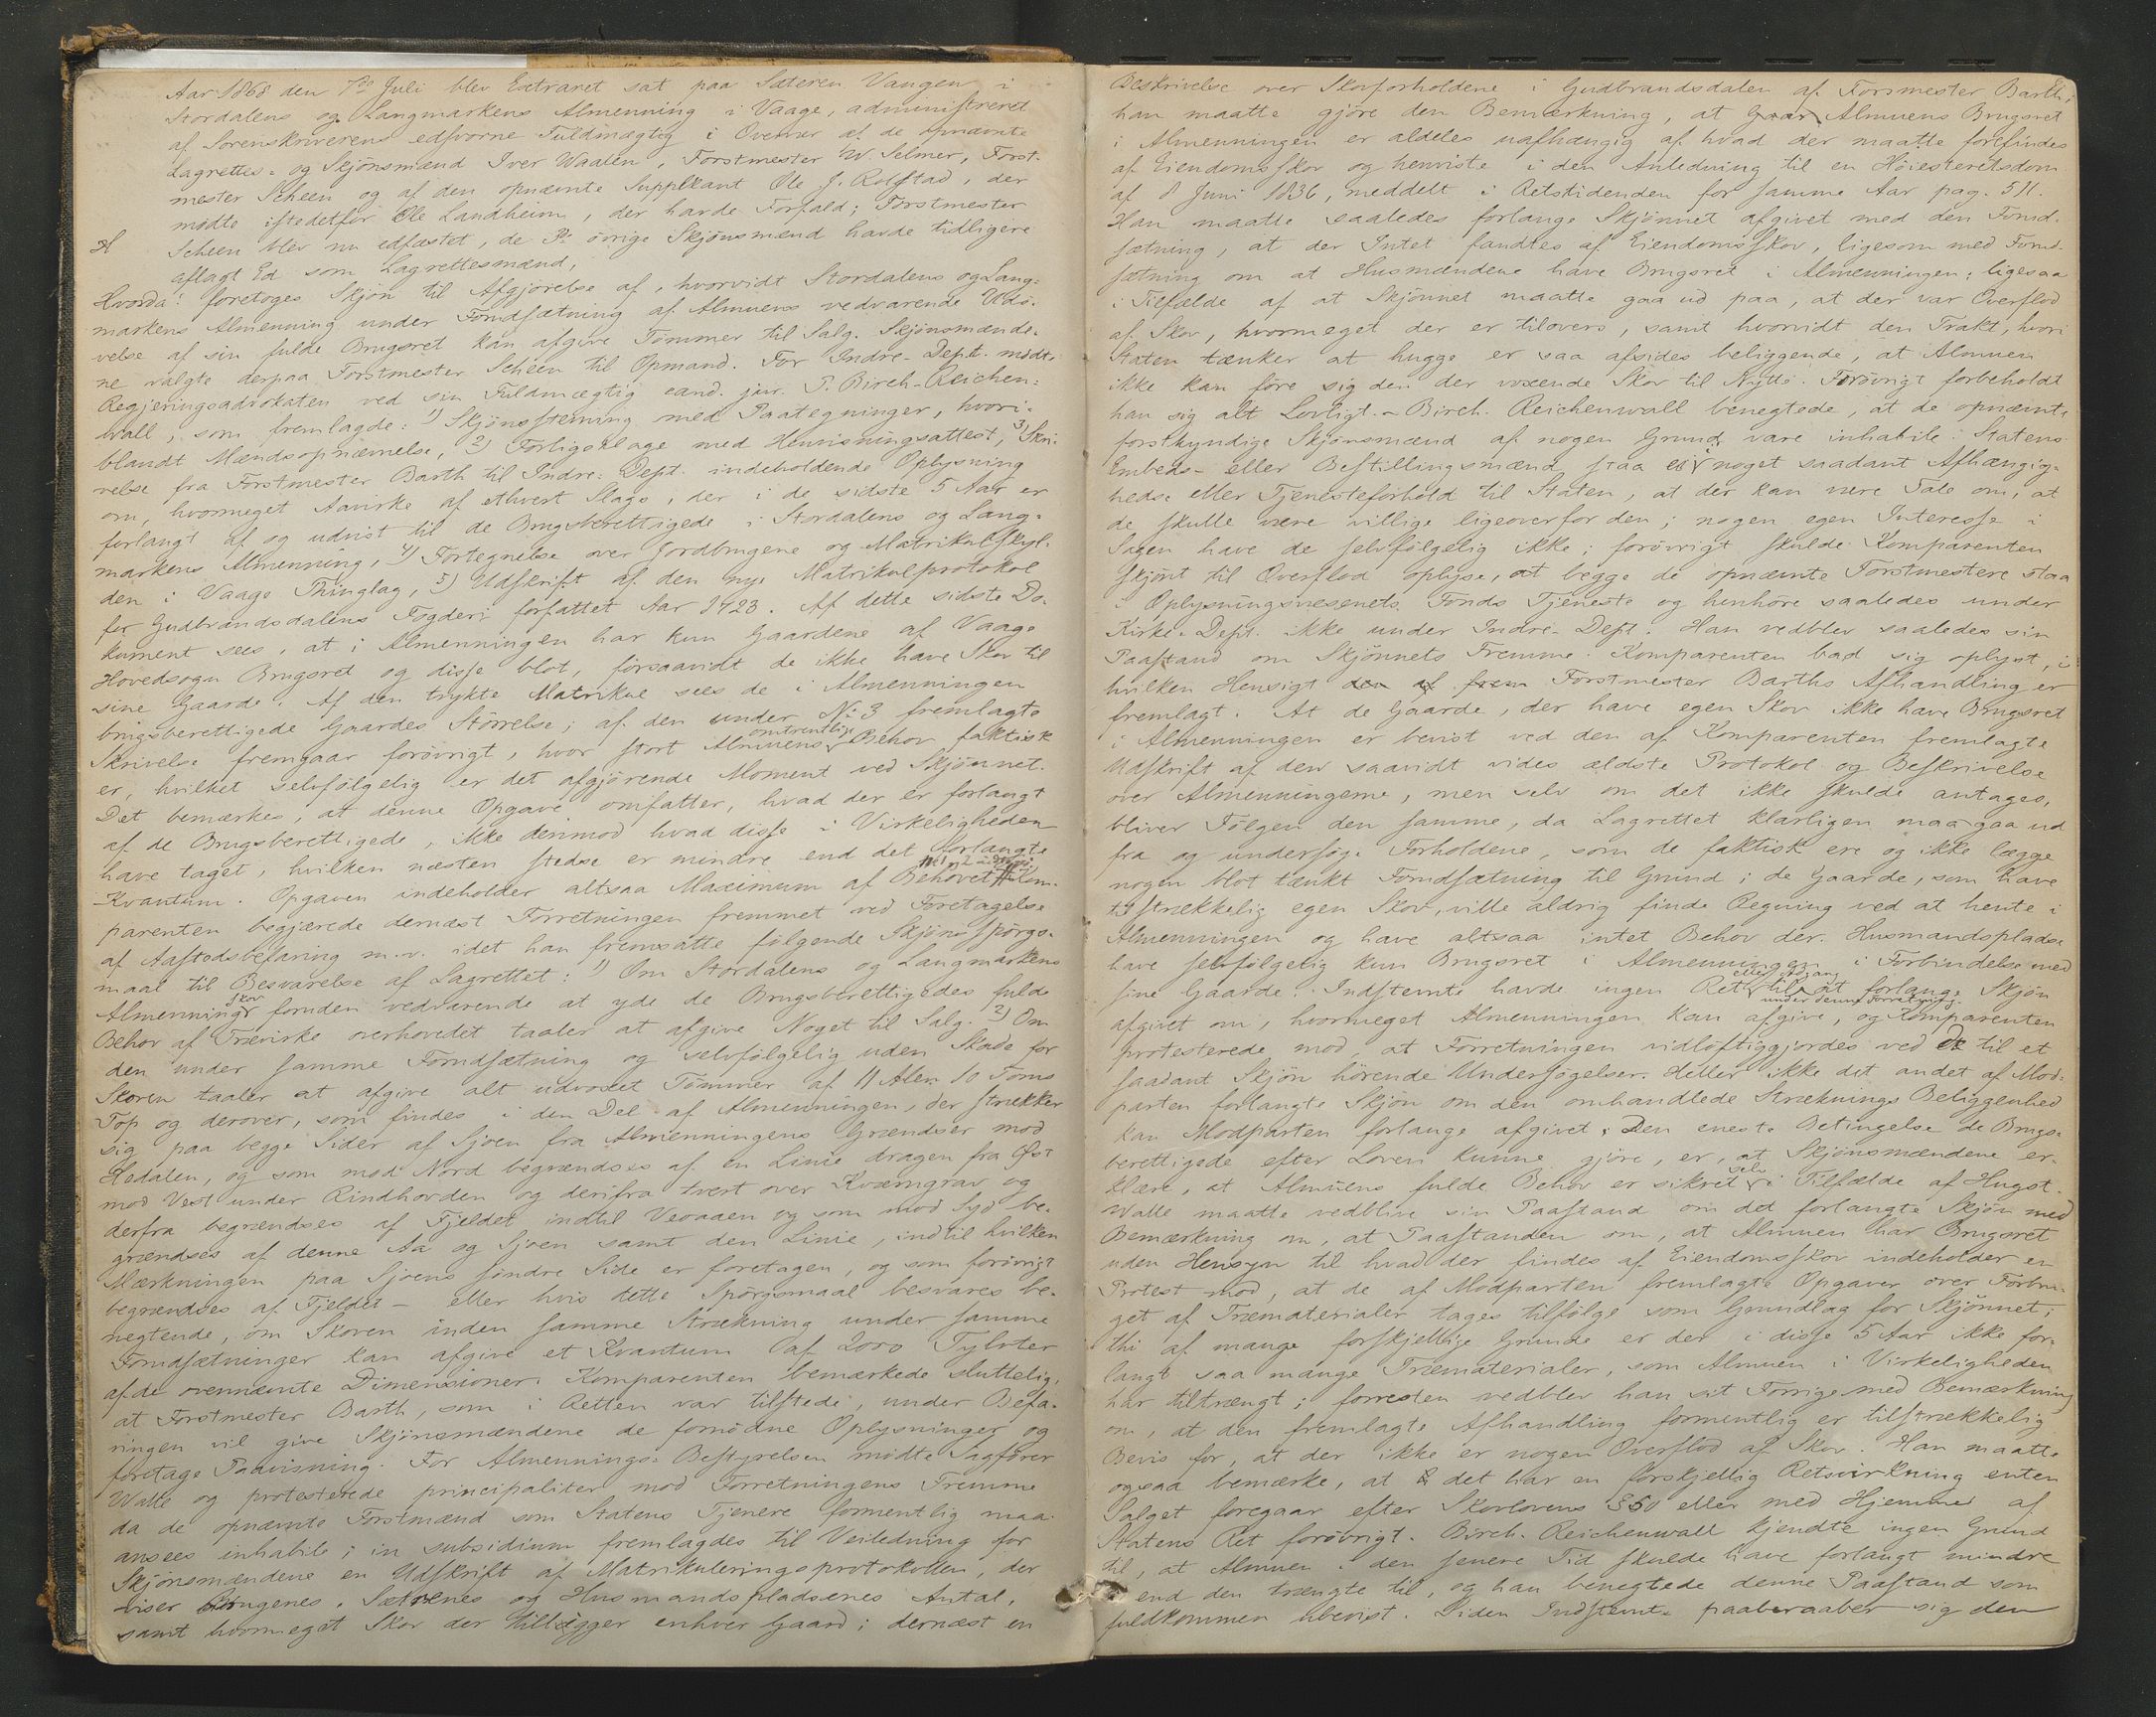 Aar 1868 den 7de Juli blev Extraret sat paa Sæteren Vangen i
Stordalens og Langmarkens Almenning i Vaage, administreret
af Sorenskriverens edsvorne Fuldmægtig i Overvær af de opnævnte
Lagrettes- og Skjönsmænd Iver Waalen, Forstmester W. Selmer, Forst-
mester Scheen og af den opnævnte Supplkant Ole J. Rolstad, der
mödte istedetfor Ole Landheim, der havde Forfald; Forstmester
Scheen blev nu edfæstet, de övrige Skjönsmænd havde tidligere
aflagt Ed som Lagrettesmænd,
Hvorda: foretoges Skjön til Afgjörelse af, hvorvidt Stordalens og Lang-
markens Almenning under Forudsætning af Almuens vedvarende Udö-
velse af sin fulde Brugsret kan afgive Tömmer til Salg. Skjönsmænde-
ne valgte derpaa Forstmester Scheen til Opmand. For Indre-Dept. mödte
Regjeringsadvokaten ved sin Fuldmægtig cand. jur. P. Birch-Reichen-
wall, som fremlagde: 1) Skjönsstevning med Paategninger, hvori-
blandt Mændsopnævnelse, 2) Forligsklage med Henvisningsattest, 3) Skri-
velse fra Forstmester Barth til Indre-Dept. indeholdende Oplysning
om, hvormeget Havirke af ethvert Slags, der i de sidste 5 Aar er
forlangt af og udvist til de Brugsberettigede i Stordalens og Lang-
markens Almenning, 4) Fortegnelse over Jordbrugene og Matrikulskyl-
den i Vaage Thinglag, 5) Udskrift af den nye Matrikulprotokol
for Gudbrandsdalens Fogderi forfattet Aar 1723. Af dette sidste Do-
kument sees, at i Almenningen har kun Gaardene af Vaage
Hovedsogn Brugsret og disse blot, forsaavidt de ikke have Skov til
sine Gaarde. Af den trykte Matrikul sees de i Almenningen
brugsberettigede Gaardes Störrelse; af den under No 3 fremlagte
Skrivelse fremgaar forövrigt, hvor stort Almuens omtrentlige Behov faktisk
er, hvilket selvfölgelig er det afgjörende Moment ved Skjönnet.
Det bemærkes, at denne Opgave omfatter, hvad der er forlangt
af de Brugsberettigede, ikke derimod hvad disse i Virkeligheden
have taget, hvilken næsten stedse er mindre end det forlangte
Kvantum. Opgaven indeholder altsaa Maximum af Behovet Kom-
parenten begjærede dernæst Forretningen fremmet ved Foretagelse
af Aastedsbefaring m.v. idet han fremsatte fölgende Skjöns spörgs-
maal til Besvarelse af Lagrettet: 1) Om Stordalens og Langmarkens
Almenningsskov foruden vedvarende at yde de Brugsberettigedes fulde
Behov af Trævirke overhovedet taaler at afgive Noget til Salg. 2) Om
den under samme Forudsætning og selvfölgelig uden Skade for
Skoven taaler at afgive alt udvoxet Tömmer af 11 Alen 10 Toms
Top og derover, som findes i den Del af Almenningen, der strækker
sig paa begge Sider af Sjoen fra Almenningens Grændser mod
Hedalen, og som mod Nord begrændses af en Linie dragen fra Øst
mod Vest under Rindhovden og derifra tvert over Kværngrav og
derfra begrændses af Fjeldet indtil Veoaaen og som mod Syd be-
grændses af denne Aa og Sjoen samt den Linie, indtil hvilken
Mærkningen paa Sjoens söndre Side er foretagen, og som forövrigt
begrændses af Fjeldet – eller hvis dette Spörgsmaal besvares be-
negtende, om Skoven inden samme Strækning under samme
Forudsætninger kan afgive et Kvantum af 2000 Tylvter
af de ovennævnte Dimensioner. Komparenten bemærkede sluttelig,
at Forstmester Barth, som i Retten var tilstede, under Befa-
ringen vil give Skjönsmændene de fornödne Oplysninger og
foretage Paavisning. For Almennings-Bestyrelsen mödte Sagförer
Walle og protesterede principaliter mod Forretningens Fremme
da de opnævnte Forstmænd som Statens Tjenere formentlig maa
ansees inhabile; in subsidium fremlagdes til Veiledning for
Skjönsmændene en Udskrift af Matrikuleringsprotokollen, der
viser Brugenes, Sætrenes og Husmandspladsenes Antal,
samt hvormeget Skov der tilligger enhver Gaard; dernæst en
Beskrivelse over Skovforholdene i Gudbrandsdalen af Forsmester Barth;
han maatte gjöre den Bemærkning, at Almuens Brugsret
i Almenningen er aldeles uafhængig af hvad der maatte forefindes
af Eiendomsskov og henviste i den Anledning til en Höiesteretsdom
af 8 Juni 1836, meddelt i Retstidenden for samme Aar pag. 511.
Han maatte saaledes forlange Skjönnet afgivet med den Forud-
sætning, at der Intet fandtes af Eiendomsskov, ligesom med Forud-
sætning om at Husmændene have Brugsret i Almenningen; ligesaa
i Tilfælde af at Skjönnet maatte gaa ud paa, at der var Overflod
af Skov, hvormeget der er tilovers, samt hvorvidt den Trakt, hvori
Staten tænker at hugge er saa afsides beliggende, at Almuen
ikke kan före sig den der voxende Skov til Nytte. Forövrigt forbeholdt
han sig alt Lovligt. – Birch-Reichenwall benegtede, at de opnævnte
forstkyndige Skjönsmænd af nogen Grund vare inhabile. Statens
Embeds- eller Bestillingsmænd staa ei i noget saadant Afhængig-
heds- eller Tjenesteforhold til Staten, at der kan være Tale om, at
de skulle være villige ligeoverfor den; nogen egen Interesse i
Sagen have de selvfölgelig ikke; forövrigt skulde Komparenten
skjönt til Overflod oplyse, at begge de opnævnte Forstmestere staa
i Oplysningsvesenets Fonds Tjeneste og henhöre saaledes under
Kirke-Dept. ikke under Indre-Dept. Han vedblev saaledes sin
Paastand om Skjönnets Fremme. Komparenten bad sig oplyst, i
hvilken Hensigt Forstmester Barths Afhandling er
fremlagt. At de Gaarde, der have egen Skov ikke have Brugsret
i Almenningen er bevist ved den af Komparenten fremlagte
Udskrift af den saavidt vides ældste Protokol og Beskrivelse
over Almenningerne, men selv om det ikke skulde antages,
bliver Fölgen den samme, da Lagrettet klarligen maa gaa ud
fra og undersöge Forholdene, som de faktisk ere og ikke lægge
nogen blot tænkt Forudsætning til Grund; de Gaarde, som have
tilstrækkelig egen Skov, ville aldrig finde Regning ved at hente i
Almenningen og have altsaa intet Behov der. Husmandspladse
have selvfölgelig kun Brugsret i Almenningen i Forbindelse med
sine Gaarde. Indstevnte havde ingen Ret eller Adgang til at forlange Skjön
afgivet om, hvormeget Almenningen kan afgive, under denne Forretning og Komparenten
protesterede mod, at Forretningen vidlöftiggjordes ved de til et
saadant Skjön hörende Undersögelser. Heller ikke det andet af Mod-
parten forlangte Skjön om den omhandlede Streknings Beliggenhed
kan Modparten forlange afgivet. Den eneste Betingelse de Brugs-
berettigede efter Loven kunne gjöre, er, at Skjönsmændene er-
klære, at Almuens fulde Behov er sikret selv i Tilfælde af Hugst.
Walle maatte vedblive sin Paastand om det forlangte Skjön med
Bemærkning om, at Paastanden om, at Almuen har Brugsret
uden Hensyn til hvad der findes af Eiendomsskov indeholder en
Protest mod, at de af Modparten fremlagte Opgaver over Forbru-
get af Træmaterialer tages tilfölge som Grundlag for Skjönnet;
thi af mange forskjellige Grunde er der i disse 5 Aar ikke for-
langt saa mange Træmaterialer, som Almuen i Virkeligheden
har tiltrængt; forresten vedblev han sit Forrige med Bemærkning
om, at den fremlagte Afhandling formentlig er tilstrækkelig
Bevis for, at der ikke er nogen Overflod af Skov. Han maatte
ogsaa bemærke, at det har en forskjellig Retsvirkning enten
Salget foregaar efter Skovlovens §50 eller med Hjemmel af
Statens Ret forövrigt. Birch-Reichenwall kjendte ingen Grund
til, at Almuen i den senere Tid skulde have forlangt mindre
end den trængte til, og han benegtede denne Paastand som
fuldkommen ubevist. Siden Indstevnte paaberaaber sig den